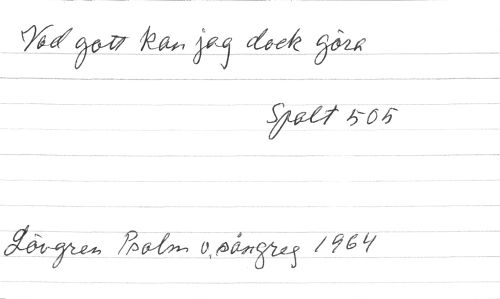 Vad gott kan jag dock göra
Spalt 505
Lövgren Psalm o. sångreg 1964